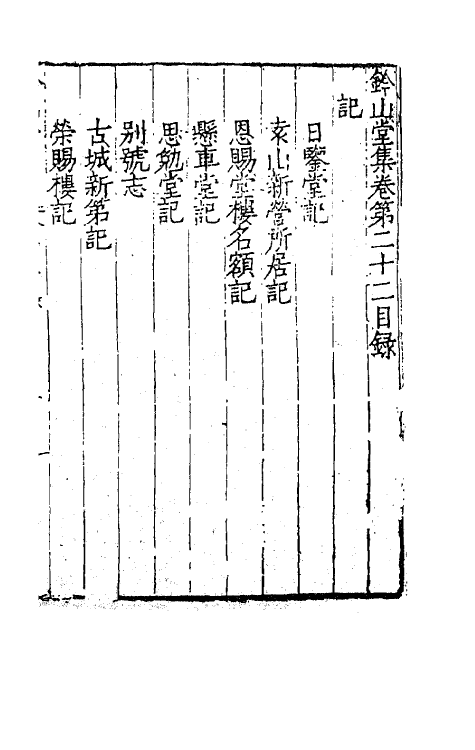 鈐山堂集卷第二十二目録
記
日鑒堂記
袁山新營所居記
恩賜堂樓名額記
懸車堂記
思勉堂記
别號志
古城新第記
榮賜樓記